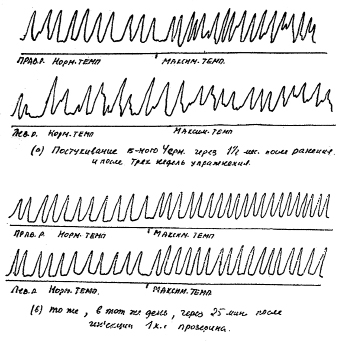 ПРАВ.Р. НОРМ. ТЕМП МАКСИМ. ТЕМП
ЛЕВ.Р. НОРМ. ТЕМП МАКСИМ. ТЕМП
(а) Постукивание б-ного Черн. через 1½ мес. после ранения
и после трех недель упражнения.
ПРАВ.Р НОРМ. ТЕМП МАКСИМ. ТЕМП
ЛЕВ.Р НОРМ. ТЕМП. МАКСИМ. ТЕМП
(б) то же, в тот же день, через 25 мин после
инъекции 1 к.с прозерина.